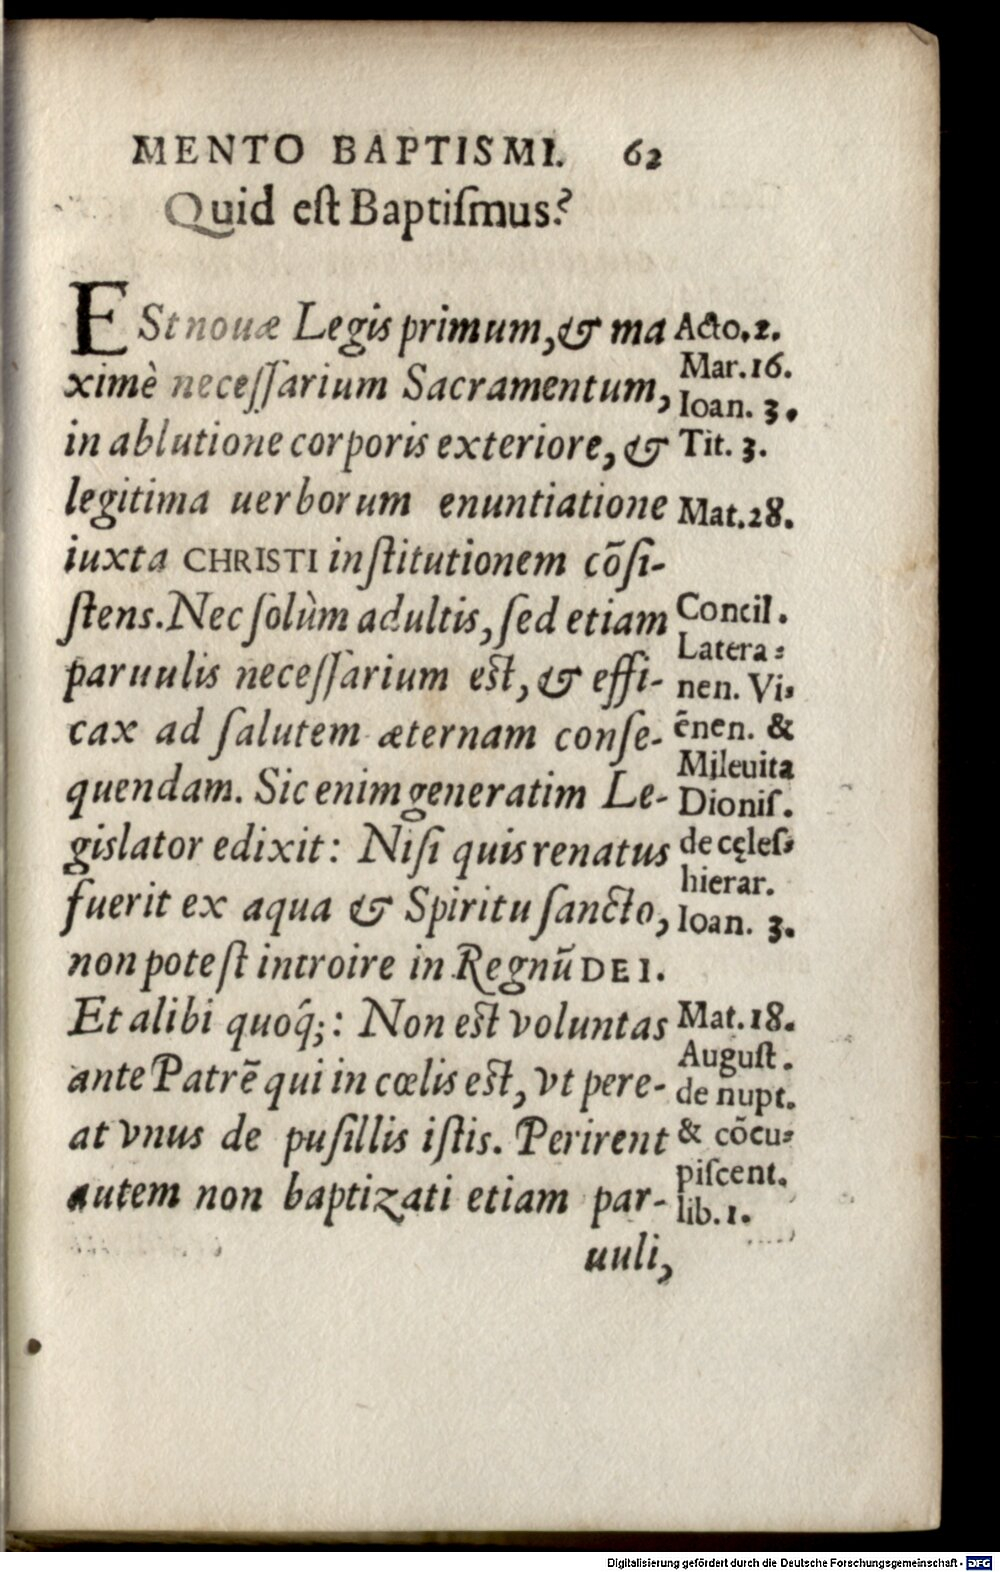 MENTO BAPTISMI. 62
Quid eſt Baptiſmus?
ESt nouæ Legis primum, & ma
ximè neceſſarium Sacramentum,
in ablutione corporis exteriore, &
legitima uerborum enuntiatione
iuxta CHRISTI inſtitutionem cōſi-
ſtens. Nec ſolùm adultis, ſed etiam
paruulis neceſſarium eſt, & effi-
cax ad ſalutem æternam conſe-
quendam. Sic enim generatim Le-
gislator edixit: Niſi quis renatus
fuerit ex aqua & Spiritu ſancto,
non poteſt introire in Regnū DEI.
Et alibi quoq́;: Non eſt voluntas
ante Patrē qui in cœlis eſt, vt pere-
at vnus de puſillis iſtis. Perirent
autem non baptizati etiam par-
uuli,
Acto. 2.
Mar. 16.
Ioan. 3.
Tit. 3.
Mat. 28.
Concil.
Latera⸗
nen. Vi⸗
ēnen. &
Mileuita
Dioniſ.
de cęleſ⸗
hierar.
Ioan. 3.
Mat. 18.
Auguſt.
de nupt.
& cōcu⸗
piſcent.
lib. 1.
Digitalisierung gefördert durch die Deutsche Forschungsgemeinschaft - DFG